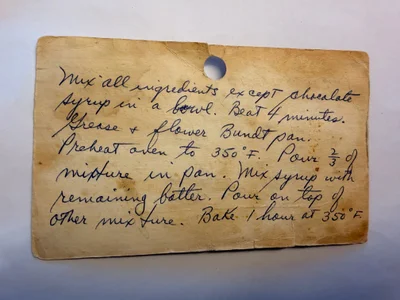 Mix all ingredients except chocolate
syrup in a bowl. Beat 4 minutes.
Grease + flower Bundt pan.
Preheat oven to 350°F. Pour 2/3 of
mixture in pan. Mix syrup with
remaining batter. Pour on top of
other mixture. Bake 1 hour at 350°F.